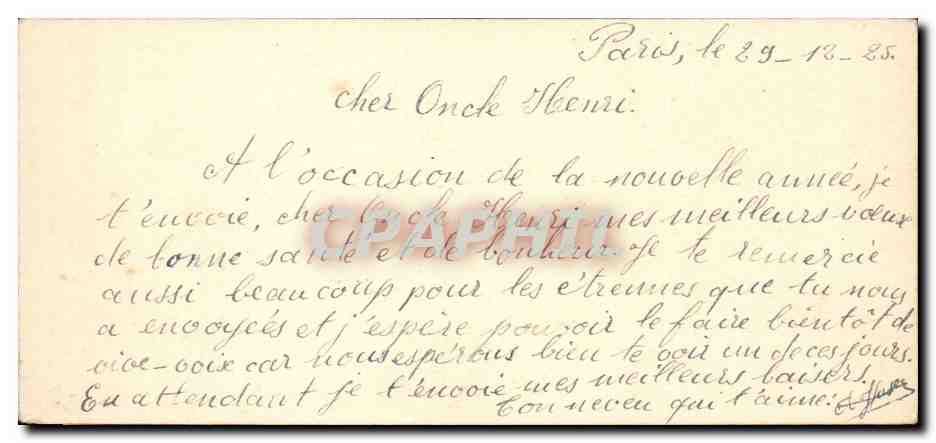 Paris, le 29-12-25.
cher Oncle Henri.
A l'occasion de la nouvelle année, je
t'envoie, cher Oncle Henri mes meilleurs vœux
de bonne santé et de bonheur. Je te remercie
aussi beaucoup pour les étrennes que tu nous
a envoyées et j'espère pouvoir le faire bientôt de
vive-voix car nous espérons bien te voir un de ces jours.
En attendant je t'envoie mes meilleurs baisers.
Ton neveu qui t'aime:
CPAPHIL